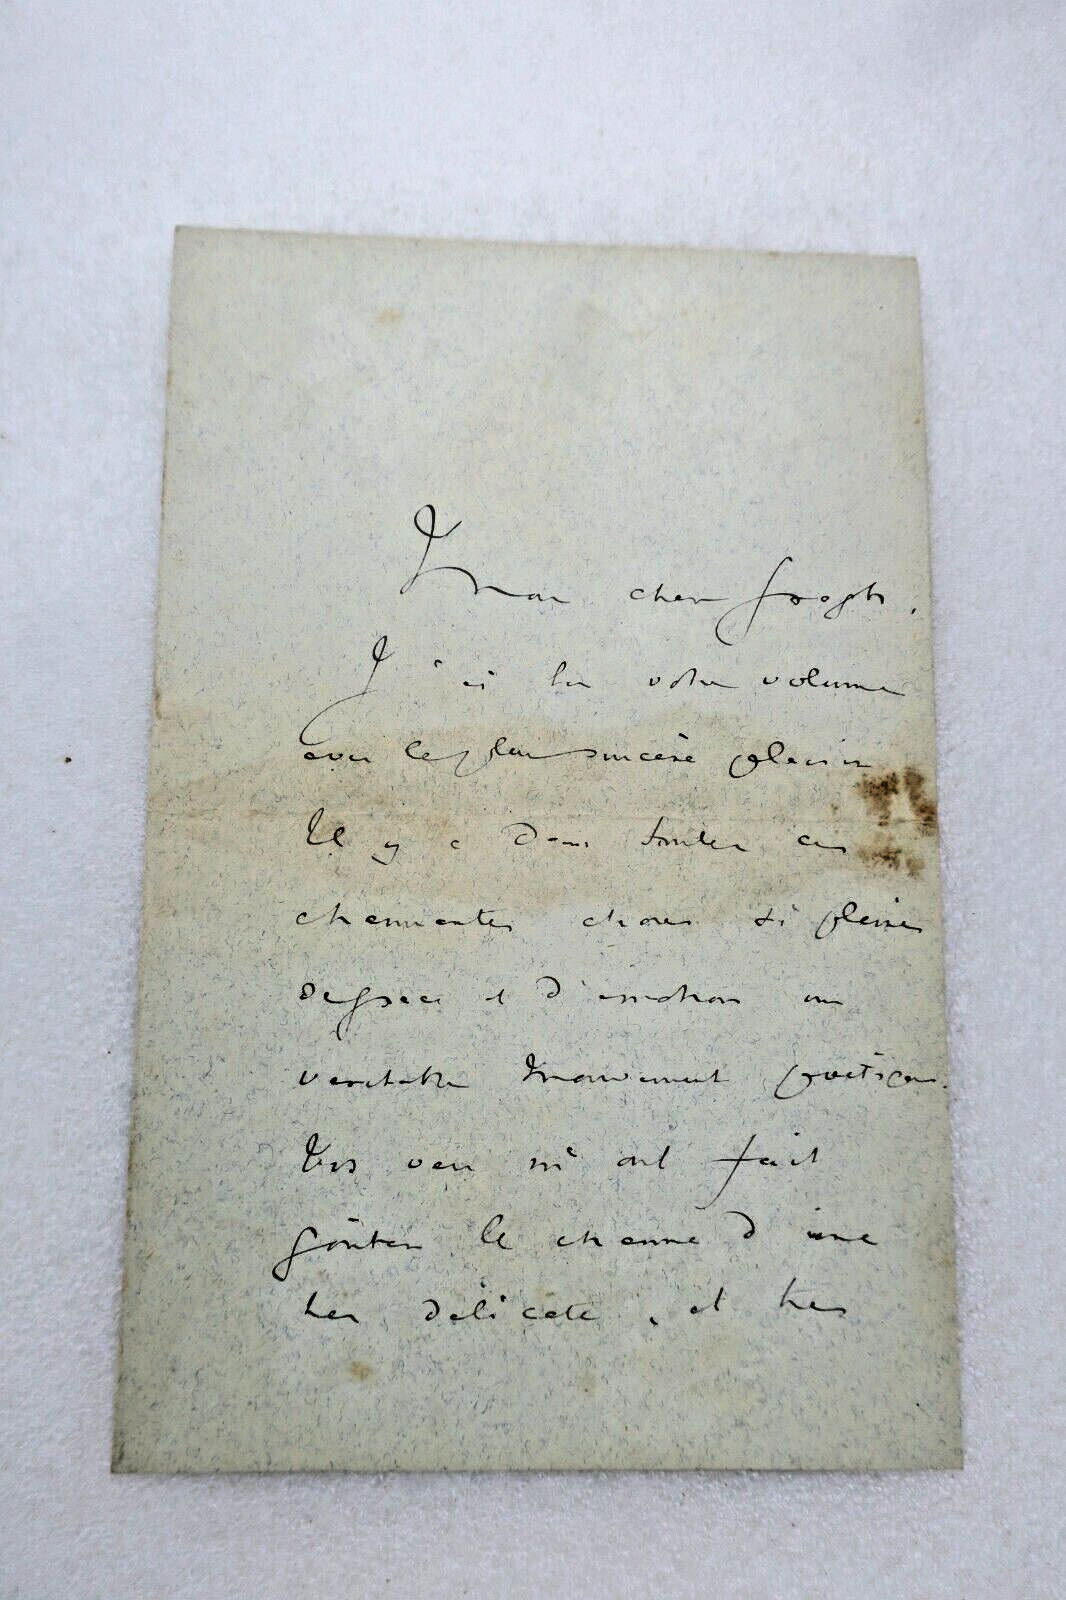 Mon cher
J'ai lu votre volume
avec le plus sincère plaisir
Il y a dans toutes ces
charmantes choses si pleines
de grace et d'émotion un
veritable mouvement poetique.
Vos vers m'ont fait
goûter le charme d'une
tres délicate, et tres